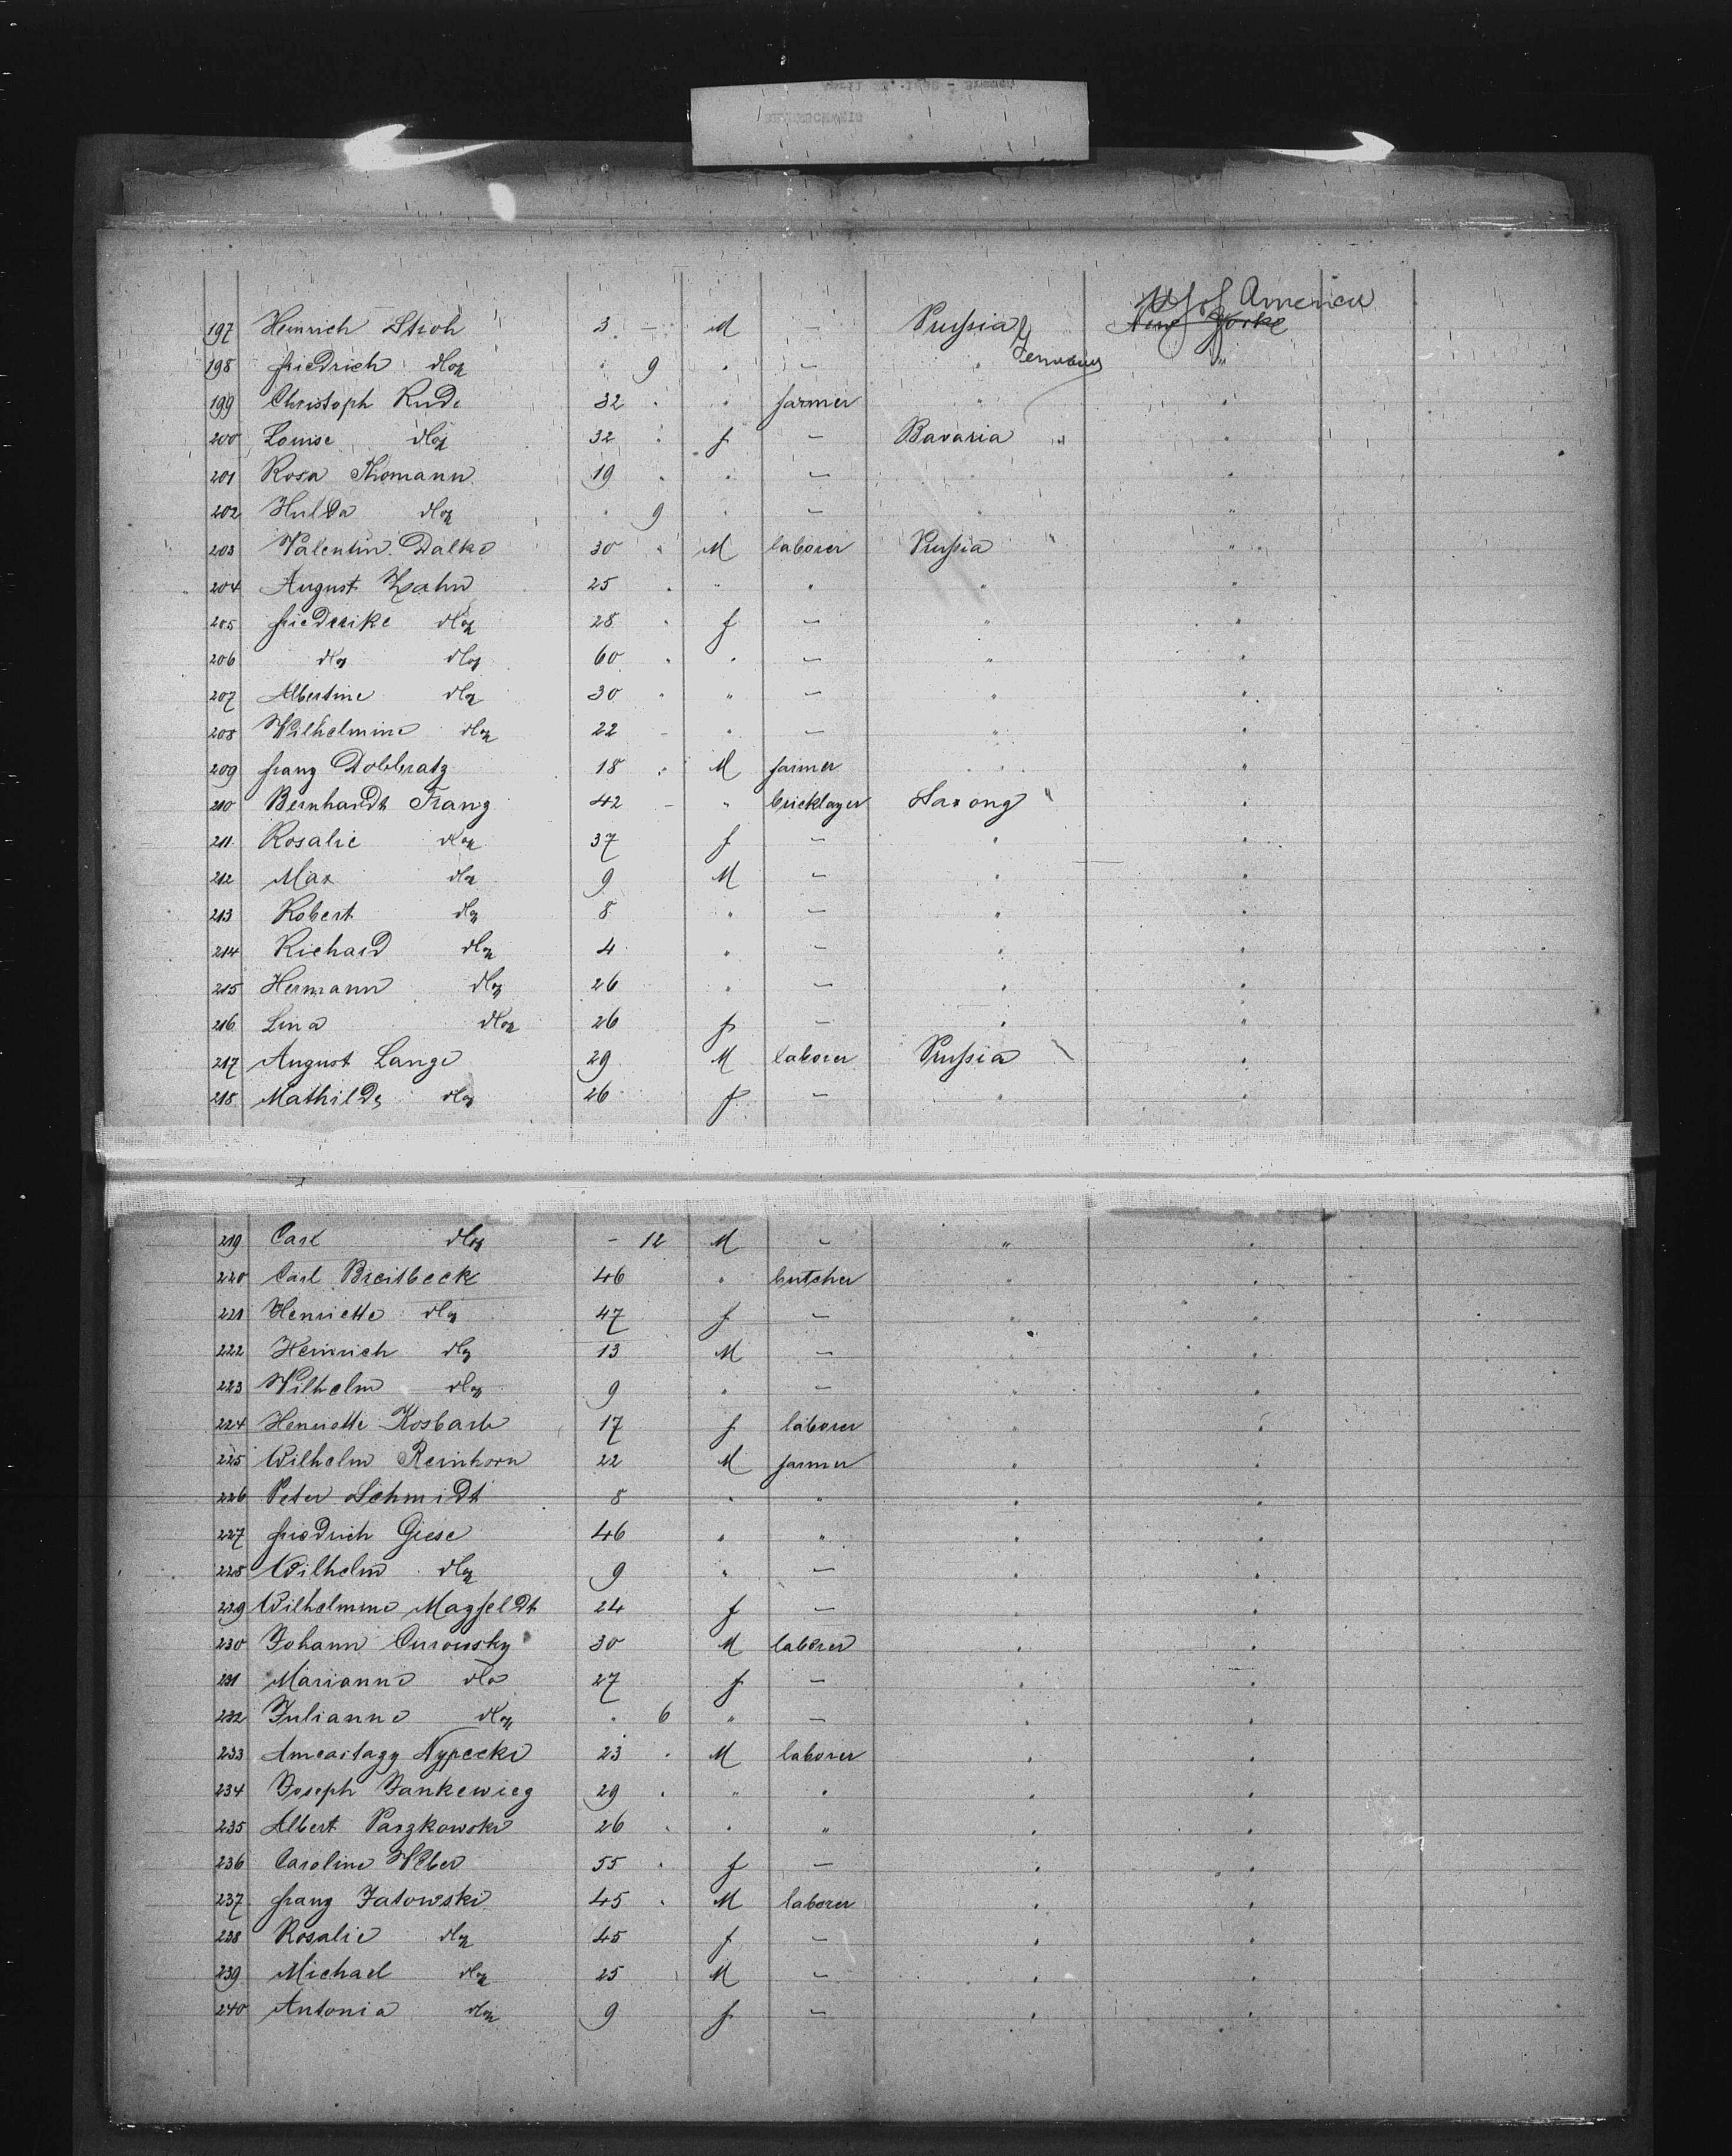 U S of America
197 Heinrich Stroh 3 - M - Prussia New Yorke
198 Friedrich do " 9 " - " Germany "
199 Christoph Rude 32 " " farmer " "
200 Louise do 32 " f - Bavaria " "
201 Rosa Thomann 19 " " - " "
202 Hulda do " 9 " - " "
203 Valentin Dalke 30 " M laborer Prussia "
204 August Zahn 25 " " " " "
205 Friederike do 28 " f - " "
206 do do 60 " " - " "
207 Albertine do 30 " " - " "
208 Wilhelmine do 22 - " - " "
209 Franz Dobbratz 18 " M farmer " "
210 Bernhardt Franz 42 - " bricklayer Saxony " "
211 Rosalie do 37 f - " "
212 Max do 9 M - " "
213 Robert do 8 " - " "
214 Richard do 4 " - " "
215 Hermann do 26 " - " "
216 Lina do 26 f - " "
217 August Lange 29 M laborer Prussia "
218 Mathilde do 26 f - " "
219 Carl do - 12 M - " "
220 Carl Breitbeck 46 " butcher " "
221 Henriette do 47 f - " "
222 Heinrich do 13 M - " "
223 Wilhelm do 9 " - " "
224 Henriette Kosbarb 17 f laborer " "
225 Wilhelm Reinhorn 22 M farmer " "
226 Peter Schmidt 8 " " " "
227 Friedrich Giese 46 " " " "
228 Wilhelm do 9 " - " "
229 Wilhelmine Magfeldt 24 f - " "
230 Johann Curowsky 30 M laborer " "
231 Marianne do 27 f - " "
232 Julianne do " 6 " - " "
233 Nypecki 23 " M laborer " "
234 Joseph Jankewicz 29 " " " " "
235 Albert Paszkowski 26 " " " " "
236 Caroline Weber 55 " f - " "
237 Franz Jatowski 45 " M laborer " "
238 Rosalie do 45 f - " "
239 Michael do 25 M - " "
240 Antonia do 9 f - " "